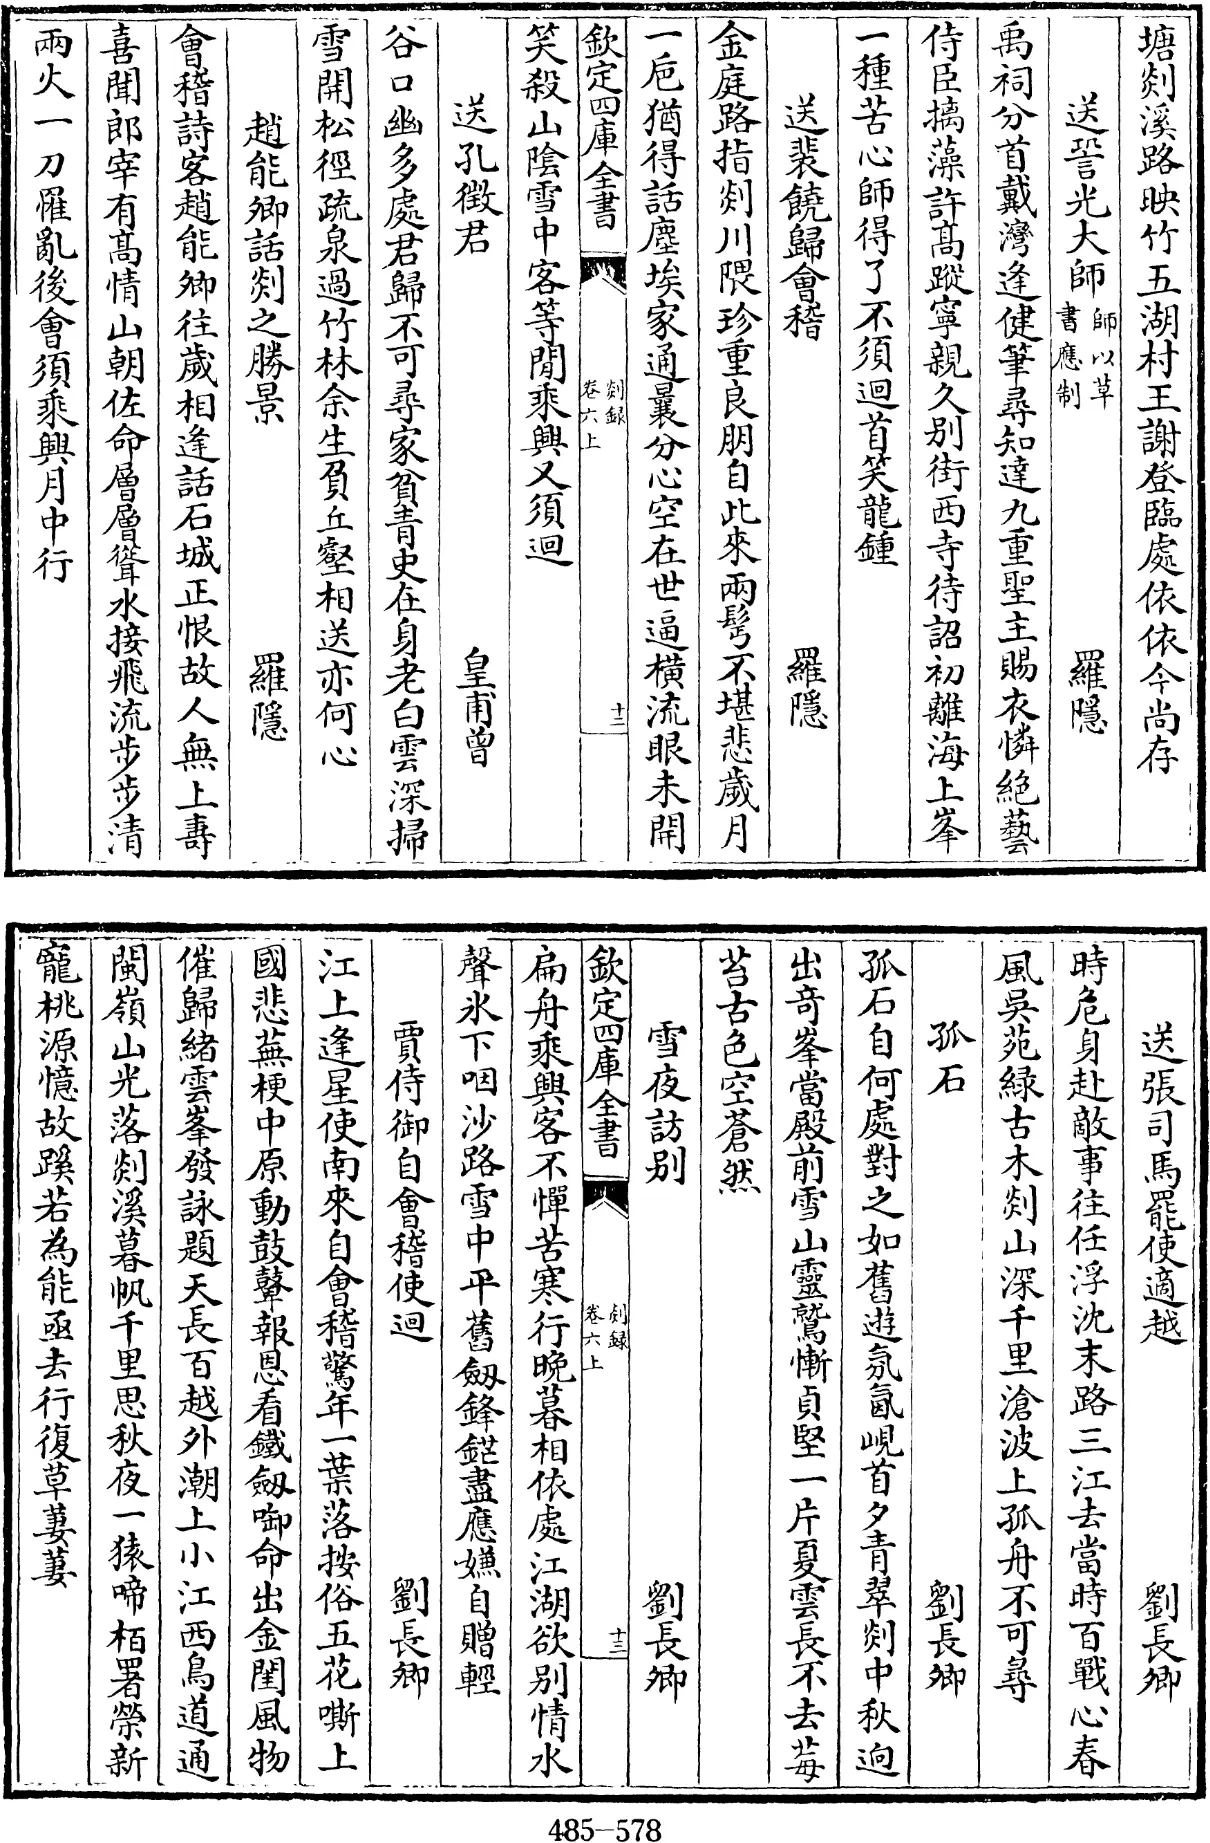 塘剡溪路映竹五湖村王謝登臨處依依今尚存
送䛒光大師師以草書應制　羅隱
禹祠分首戴灣逢健筆尋知達九重聖主賜衣憐絶藝
侍臣摛藻許髙蹤寧親久别街西寺待詔初離海上峯
一種苦心師得了不須迴首笑龍鍾
送裴饒歸會稽　羅隱
金庭路指剡川隈珍重良朋自此來兩鬂不堪悲歲月
一巵猶得話塵埃家通曩分心空在世逼橫流眼未開
欽定四庫全書　剡録卷六上　十二
笑殺山陰雪中客等閒乘興又須迴
送孔徵君　皇甫曾
谷口幽多處君歸不可尋家貧青史在身老白雲深掃
雪開松徑疏泉過竹林余生負丘壑相送亦何心
趙能卿話剡之勝景　羅隱
會稽詩客趙能卿往歲相逢話石城正恨故人無上壽
喜聞郎宰有髙情山朝佐命層層聳水接飛流步步清
兩火一刀罹亂後會須乘興月中行
送張司馬罷使適越　劉長卿
時危身赴敵事往任浮沈末路三江去當時百戰心春
風吳苑緑古木剡山深千里滄波上孤舟不可尋
孤石　劉長卿
孤石自何處對之如舊遊氛氳峴首夕青翠剡中秋逈
出奇峯當殿前雪山靈鷲慚貞堅一片夏雲長不去莓
苔古色空蒼然
雪夜訪别　劉長卿
欽定四庫全書　剡録卷六上　十三
扁舟乘興客不憚苦寒行晚暮相依處江湖欲别情水
聲氷下咽沙路雪中平舊劒鋒鋩盡應嫌自贈輕
賈侍御自會稽使迴　劉長卿
江上逢星使南來自會稽驚年一葉落按俗五花嘶上
國悲蕪梗中原動鼓鼙報恩看鐵劒㗸命出金閨風物
催歸緒雲峯發詠題天長百越外潮上小江西鳥道通
閩嶺山光落剡溪暮帆千里思秋夜一猿啼栢署榮新
寵桃源憶故蹊若為能亟去行復草萋萋
485-578